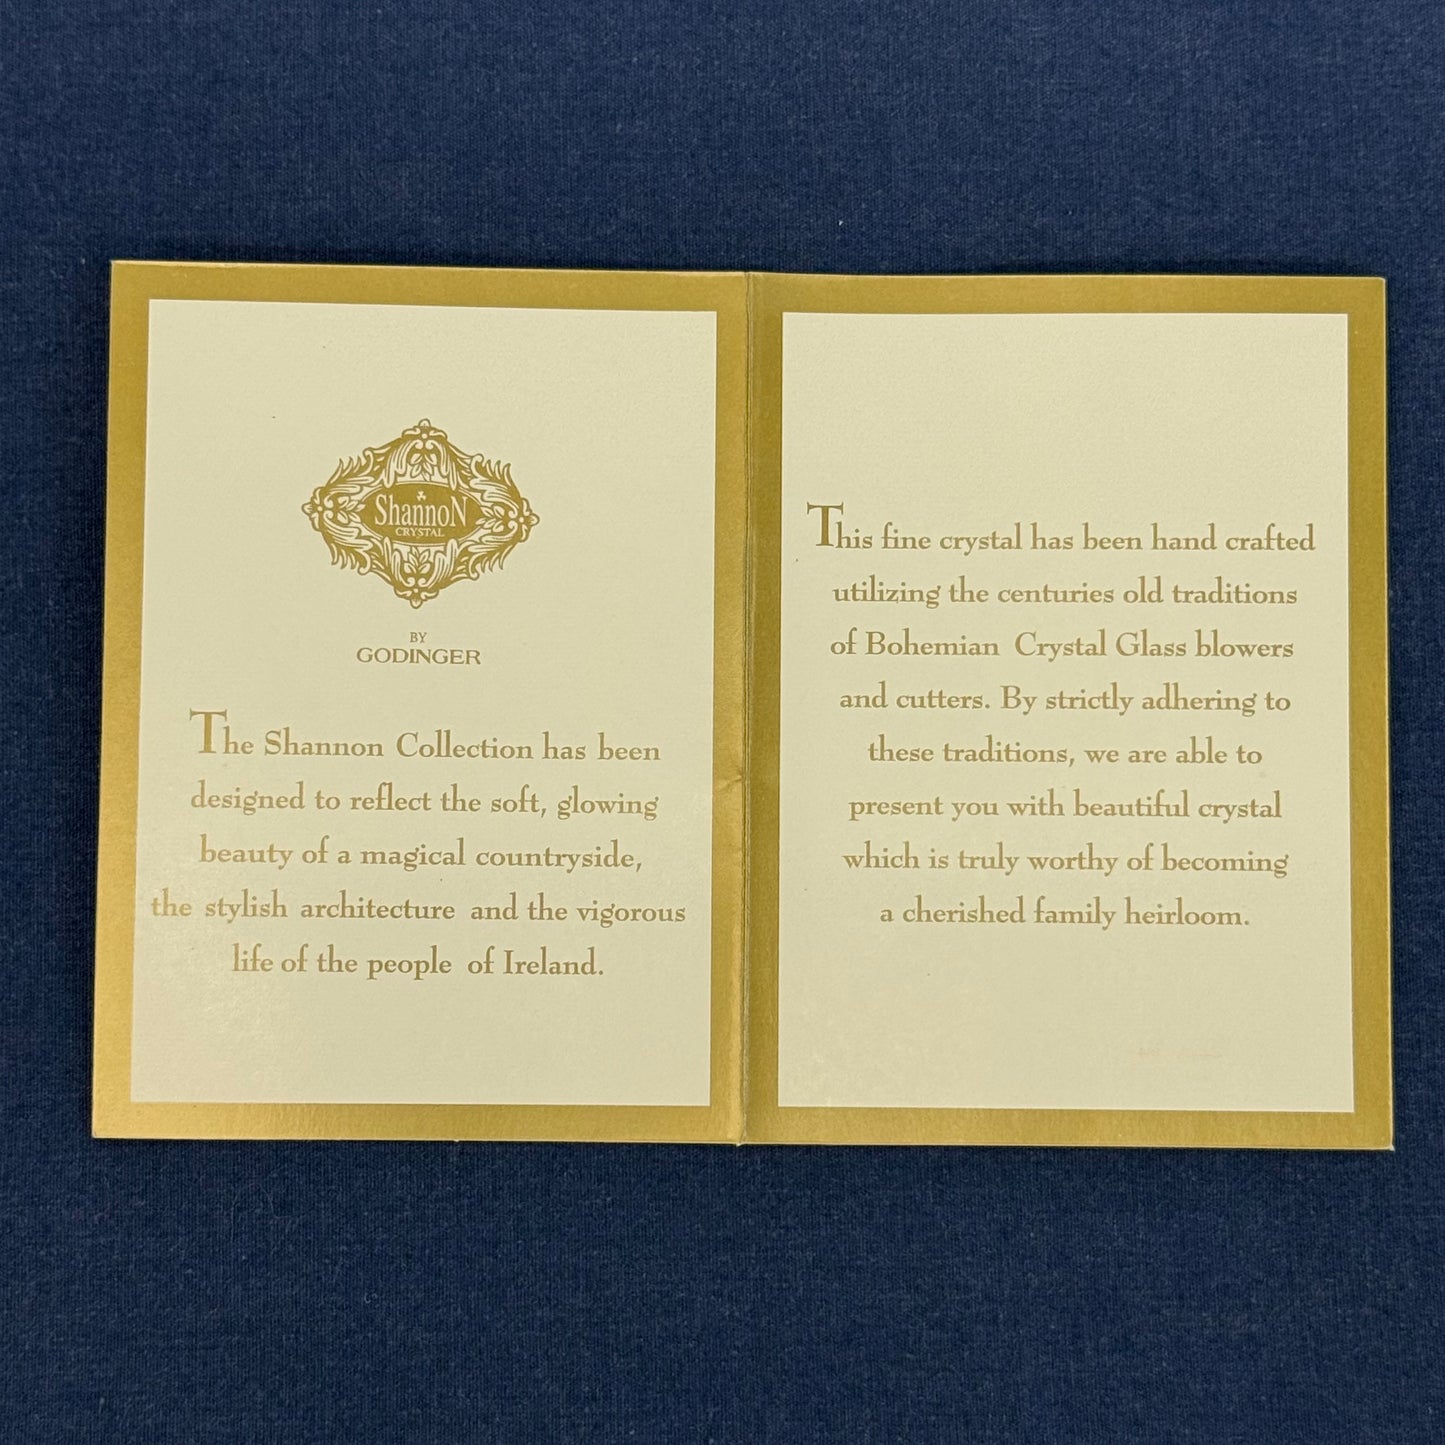 ShannoN
CRYSTAL
BY
GODINGER
The Shannon Collection has been
designed to reflect the soft, glowing
beauty of a magical countryside,
the stylish architecture and the vigorous
life of the people of Ireland.
This fine crystal has been hand crafted
utilizing the centuries old traditions
of Bohemian Crystal Glass blowers
and cutters. By strictly adhering to
these traditions, we are able to
present you with beautiful crystal
which is truly worthy of becoming
a cherished family heirloom.